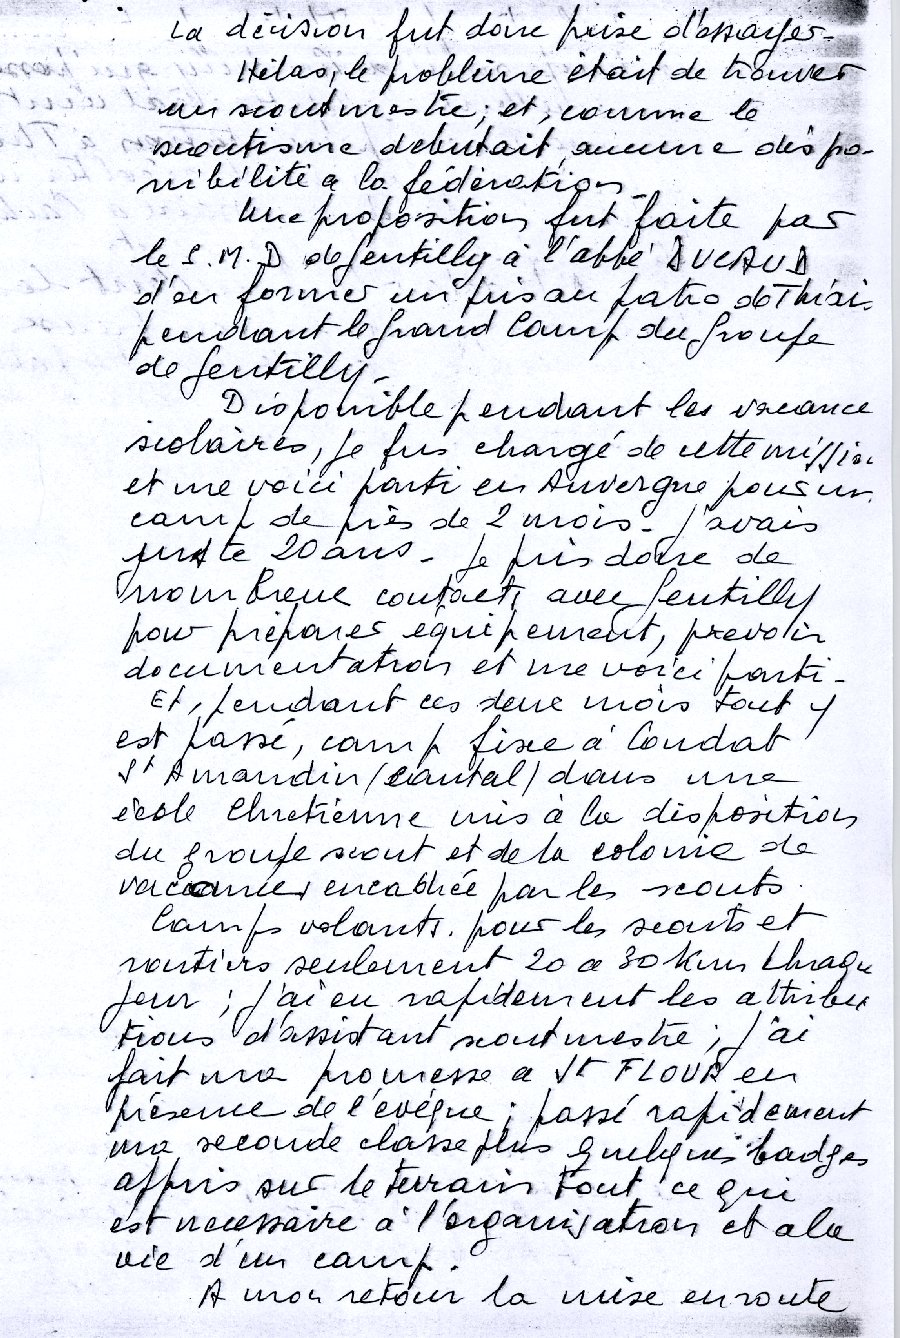 La décision fut donc prise d'essayer -
Hélas, le problème était de trouver
un scoutmestre ; et, comme le
scoutisme debutait, aucune dispo-
nibilité à la fédération -
Une proposition fut faite par
le S.M.D de Gentilly à l'abbé DUCAUD
d'en former un pris au patro de Thiai-
pendant le grand Camp du groupe
de Gentilly -
Disponible pendant les vacance
scolaires, je fus chargé de cette mission
et me voici parti en Auvergne pour un
camp de près de 2 mois - j'avais
juste 20 ans - je pris donc de
nombreux contacts avec Gentilly
pour préparer équipement, prevoir
documentation et me voici parti -
Et, pendant ces deux mois tout y
est passé, camp fixe à Condat
St Amandin (cantal) dans une
école Chretienne mis à la disposition
du groupe scout et de la colonie de
vacances encadrée par les scouts.
Camps volants. pour les scouts et
routiers seulement 20 a 30 Km chaque
jour ; j'ai eu rapidement les attribu
tions d'assistant scoutmestre ; j'ai
fait ma promesse a St FLOUR en
présence de l'evêque ; passé rapidement
ma seconde classe plus quelques badges
appris sur le terrain tout ce qui
est necessaire à l'organisation et a la
vie d'un camp.
A mon retour la mise en route